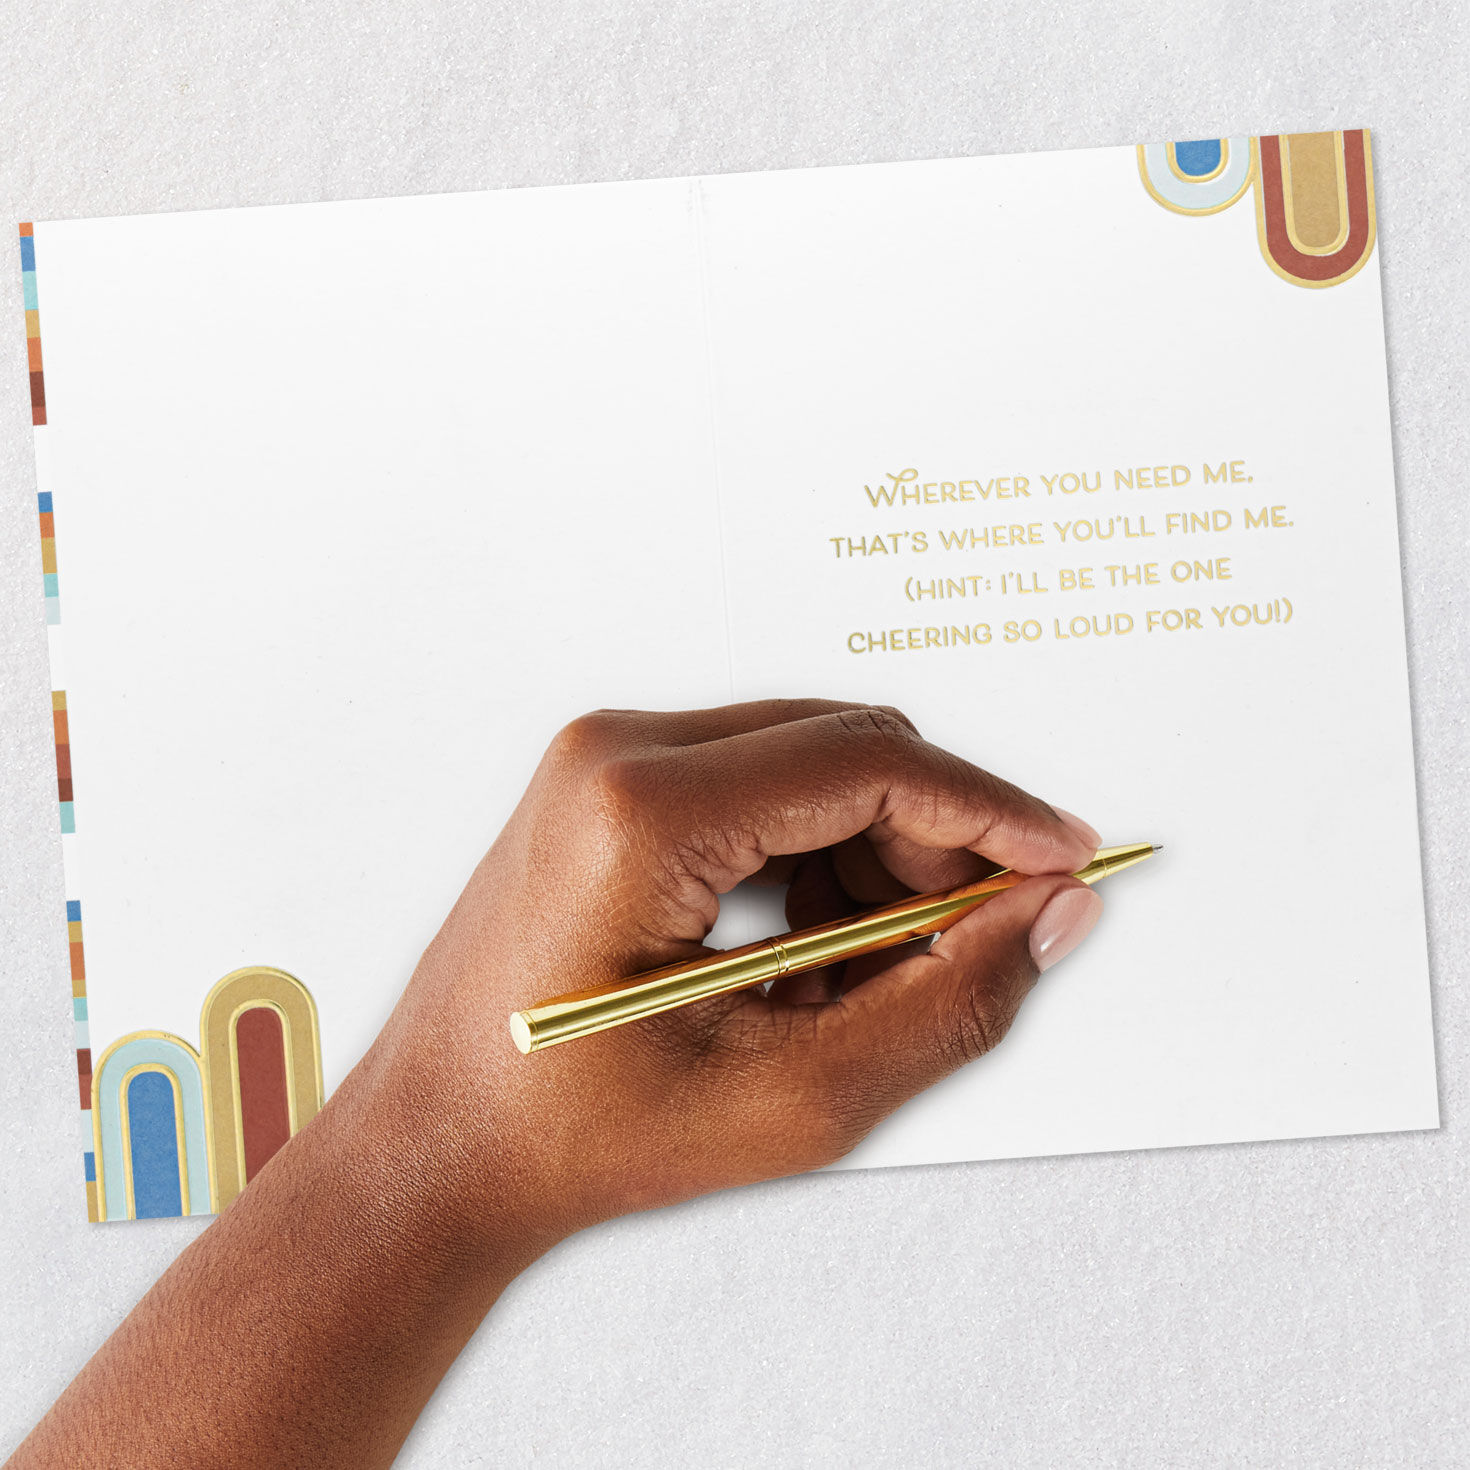 WHEREVER YOU NEED ME,
THAT'S WHERE YOU'LL FIND ME.
(HINT: I'LL BE THE ONE
CHEERING SO LOUD FOR YOU!)